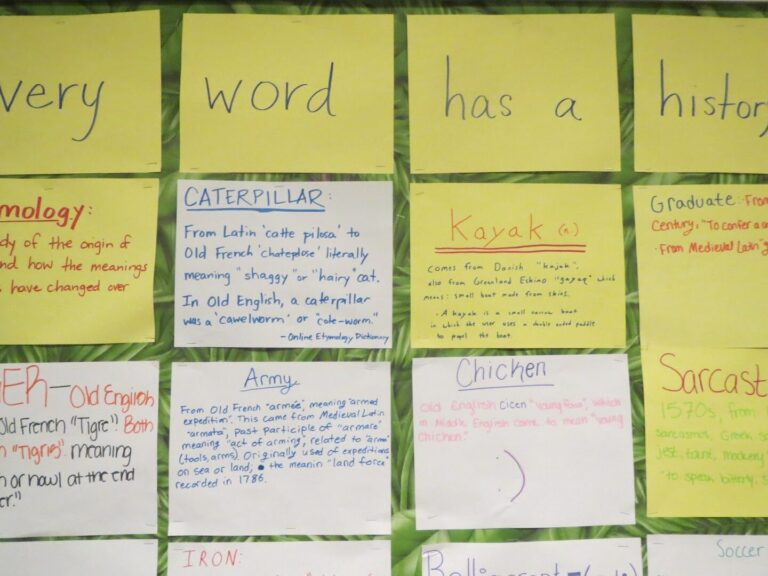 very word has a history
mology:
dy of the origin of
nd how the meanings
s have changed over
CATERPILLAR:
From Latin 'catte pilosa' to
Old French 'chatepelose' literally
meaning "shaggy" or "hairy" cat.
In Old English, a caterpillar
was a 'cawelworm' or "cole-worm."
- Online Etymology Dictionary
Kayak (n)
comes from Danish "kajak",
also from Greenland Eskimo "qayaq" which
means: small boat made from skins.
· A kayak is a small narrow boat
in which the user uses a double ended paddle
to propel the boat.
Graduate: From
Century, "To confer a
· From Medieval Latin
ER- Old English
Old French "Tigre"! Both
n "Tigris" meaning
n or nowl at the end
er."
Army
From Old French "armée", meaning "armed
expedition". This came from Medieval Latin
"armata", past participle of "armare"
meaning "act of arming", related to "arma"
(tools, arms). Originally used of expeditions
on sea or land, the meanin "land force"
recorded in 1786.
Chicken
Old English cicen "young fowl", which
in Middle English came to mean "young
chicken."
:)
Sarcast
1570s, from
sarcasmos, Greek
jest, taunt, mockery
"to speak bitterly,
IRON:
Soccer